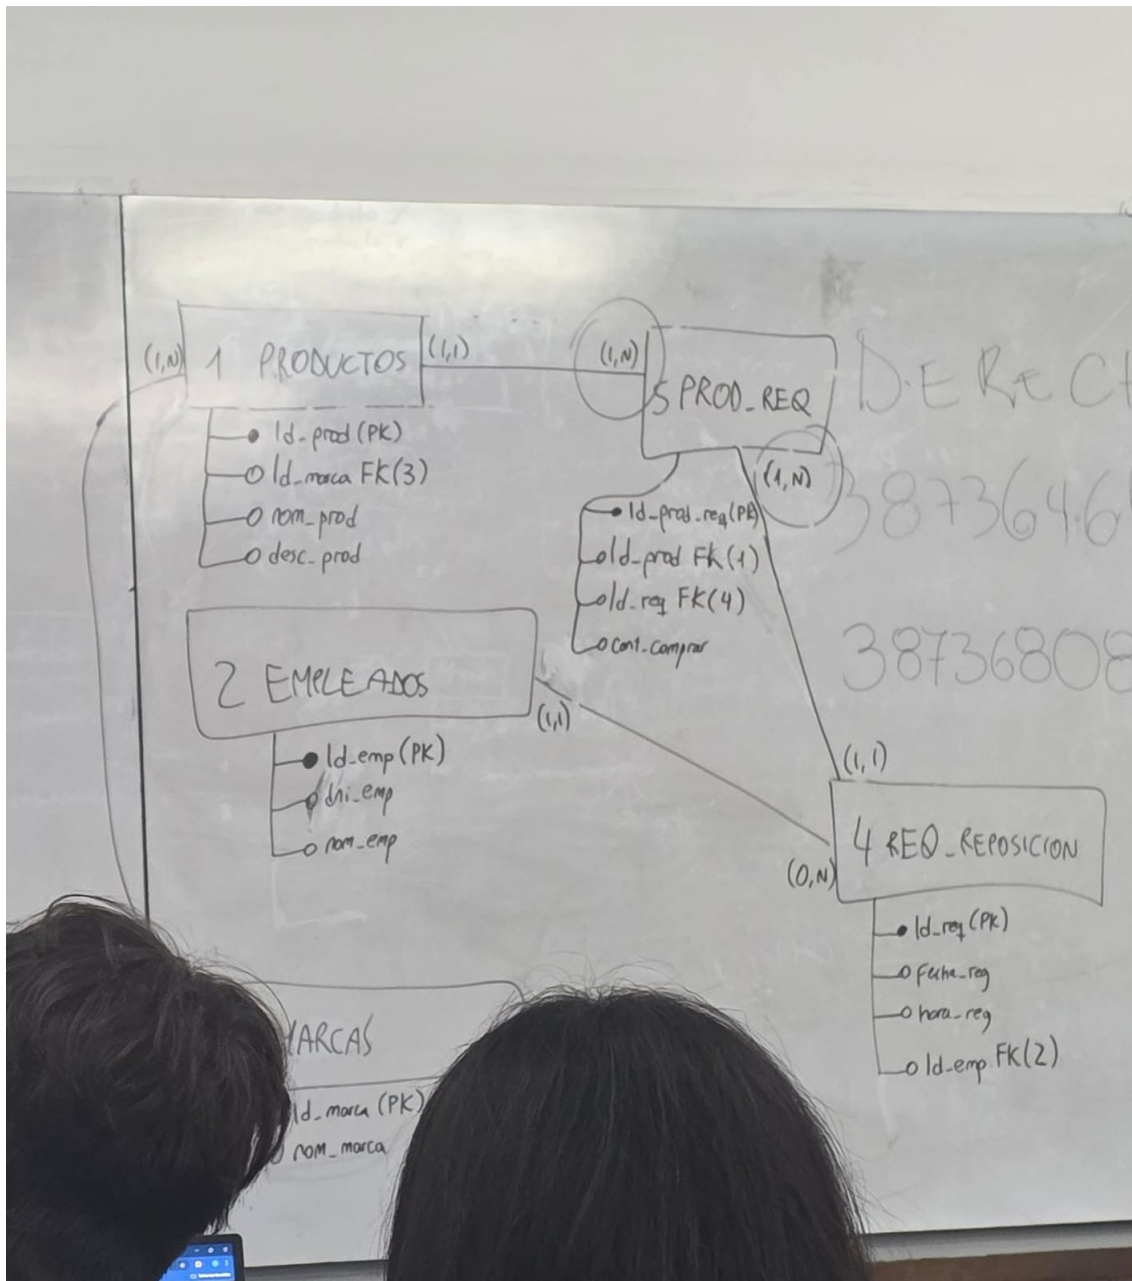 (1,N)
1 PRODUCTOS
(1,1)
Id_prod (PK)
Id_marca FK(3)
nom_prod
desc_prod
(1,N)
5 PROD_REQ
(1,N)
Id_prod_req (PK)
Id_prod FK(1)
Id_req FK(4)
cant_comprar
2 EMPLEADOS
(1,1)
Id_emp (PK)
dni_emp
nom_emp
(1,1)
4 REQ_REPOSICION
(0,N)
Id_req (PK)
fecha_req
hora_req
Id_emp FK(2)
MARCAS
Id_marca (PK)
nom_marca